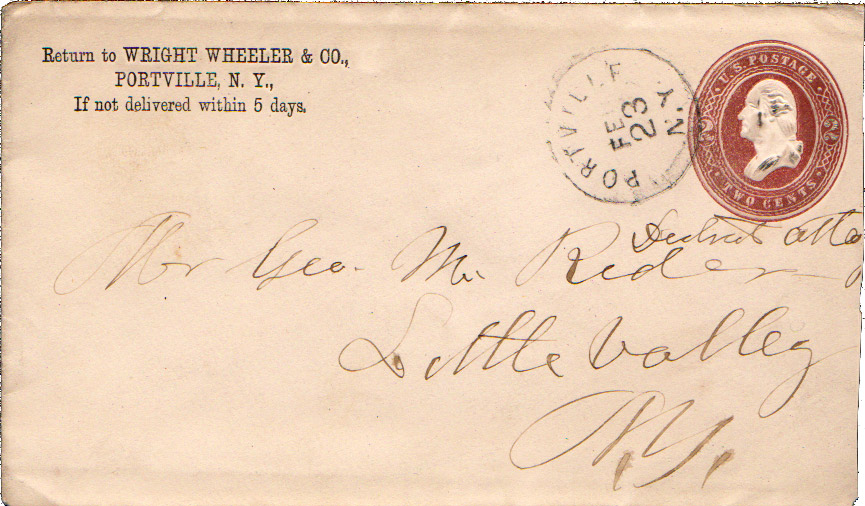 Return to WRIGHT WHEELER & CO.,
PORTVILLE, N. Y.,
If not delivered within 5 days.
PORTVILLE N.Y.
FEB 23
U.S. POSTAGE
TWO CENTS
District Atty
Mr Geo. M. Rider
Little Valley
N.Y.